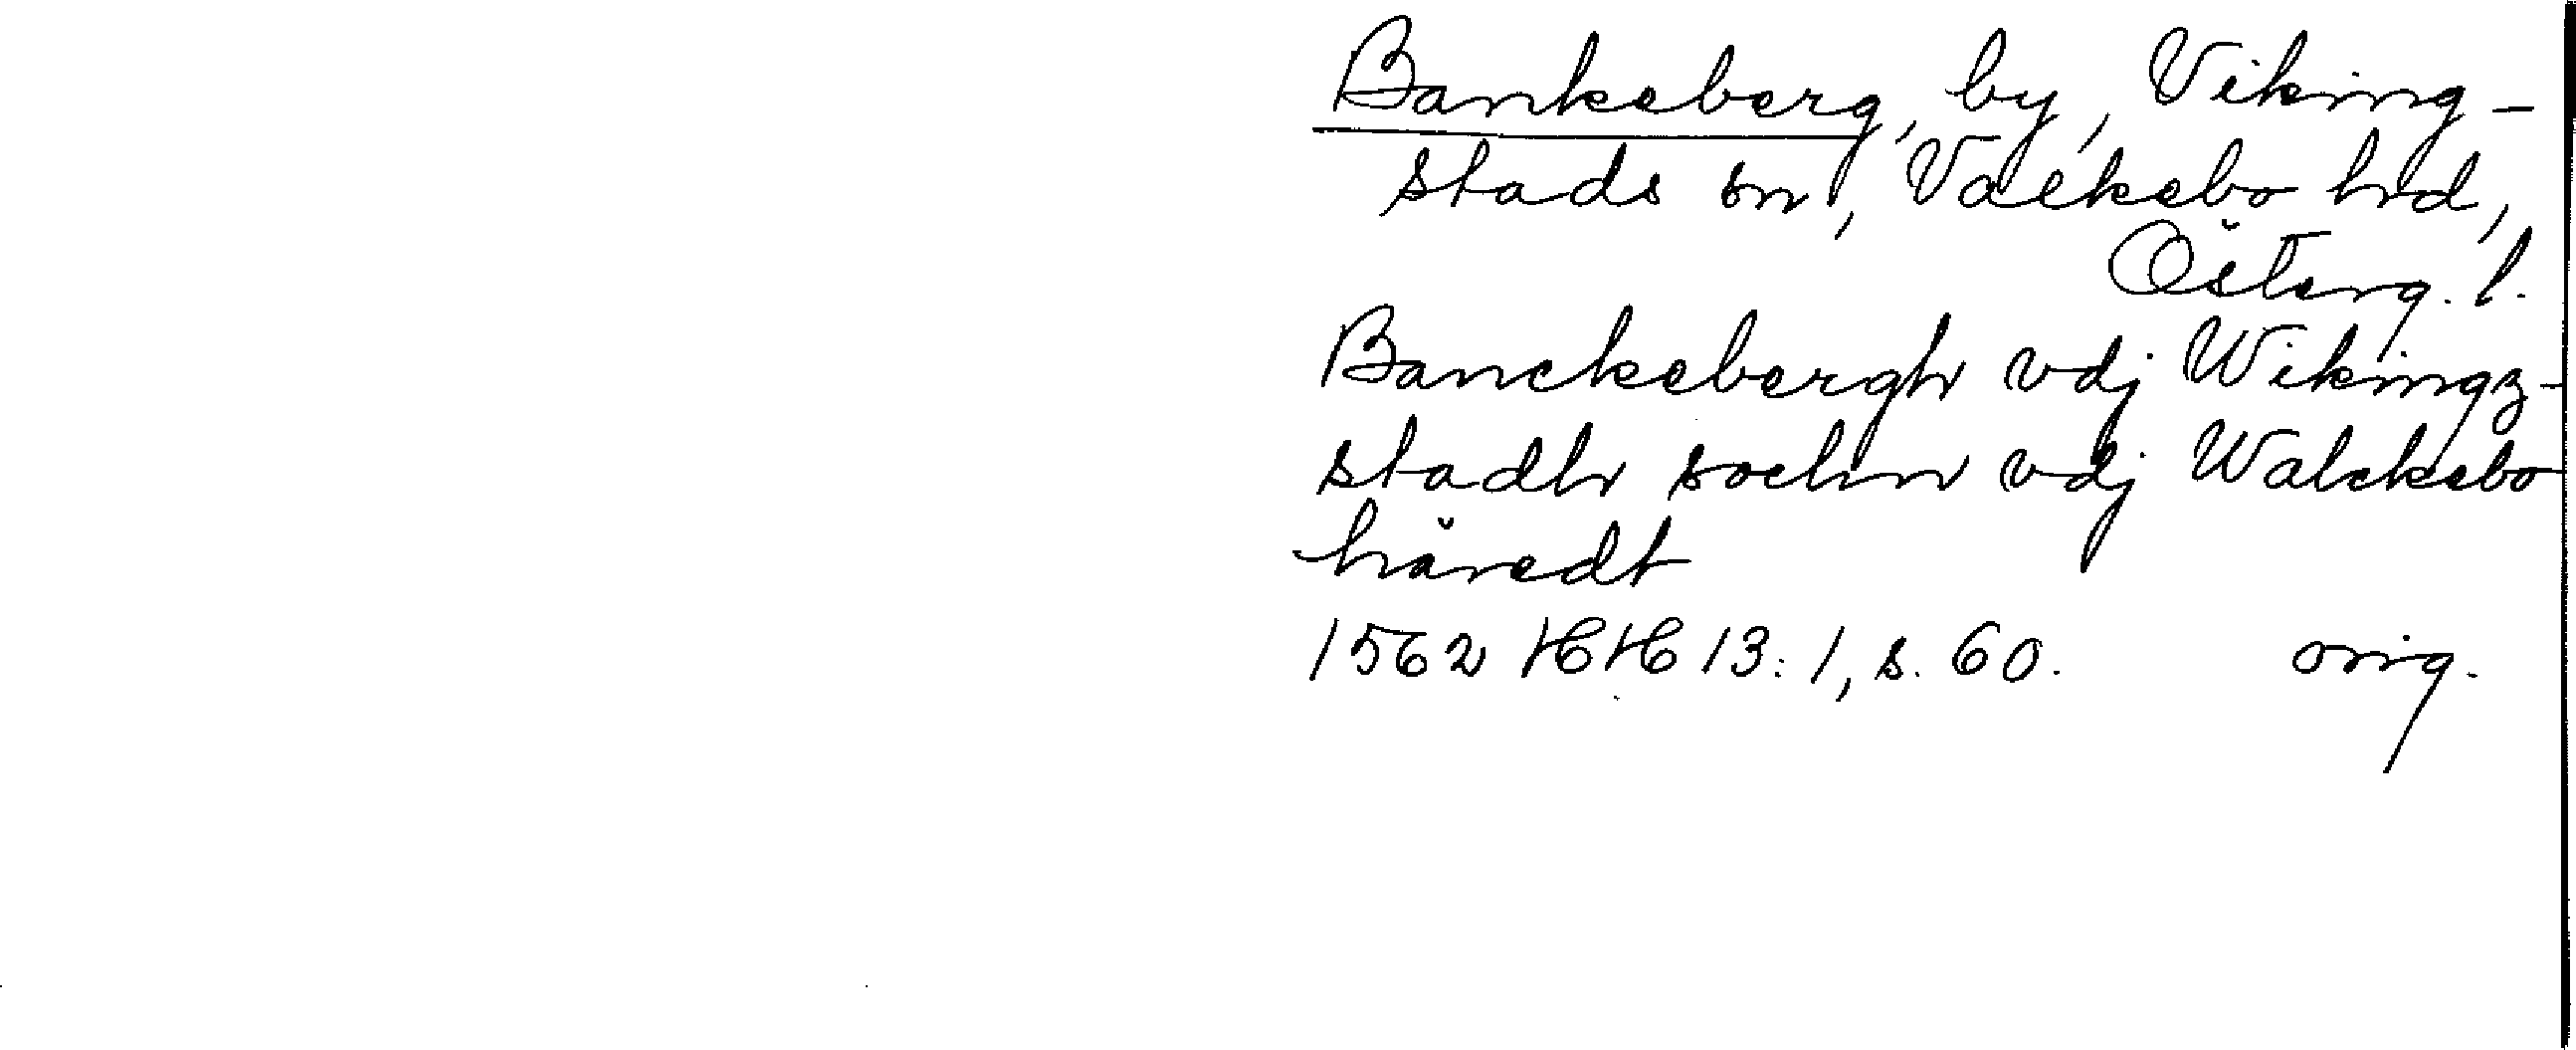 Bankeberg, by, Viking-
stads sn, Valkebo hd,
Österg. l.
Banckebergh vdj Wikingz-
stadh sochn vdj Walckebo
häredt
1562 HH 13:1, s. 60. orig.